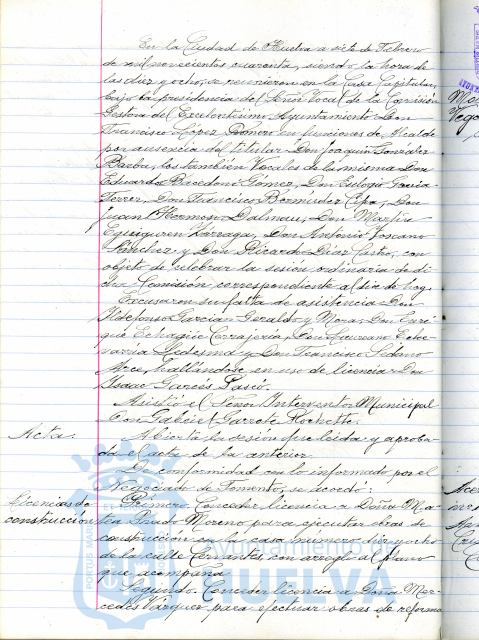 En la Ciudad de Huelva a siete de Febrero
de mil novecientos cuarenta, siendo la hora de
las diez y ocho, se reunieron en la Casa Capitular,
bajo la presidencia del Señor Vocal de la Comisión
Gestora del Excelentísimo Ayuntamiento Don
Francisco López Romero en funciones de Alcalde
por ausencia del titular Don Joaquín González
Barba, los también Vocales de la misma Don
Eduardo Gómez, Don Eulogio García
Ferrer, Don Francisco Bermúdez Don
Juan Hermoso Dalmau, Don Martín
Eguiguren Don Antonio
Sánchez y Don Ricardo Díez Castro, con
objeto de celebrar la sesión ordinaria de di-
cha Comisión correspondiente al día de hoy.
Excusaron su falta de asistencia Don
Ildefonso García Geraldo y Mora, Don Enri-
que Echagüe Don Luciano Eche-
varría Ledesma y Don Francisco Sedano
Arce, hallándose en uso de licencia Don
Isaac Garcés
Asistió el Señor Interventor Municipal
Don Gabriel Garrote
Acta.
Abierta la sesión fue leída y aproba-
da el acta de la anterior.
De conformidad con lo informado por el
Negociado de Fomento, se acordó:
Licencias de
construcción
Primero. Conceder licencia a Doña Ma-
Prado Moreno para ejecutar obras de
construcción en la casa número diez y ocho
de la calle Cervantes, con arreglo al plano
que acompaña
Segundo. Conceder licencia a Doña Mer-
cedes Vázquez para efectuar obras de reforma
HUELVA